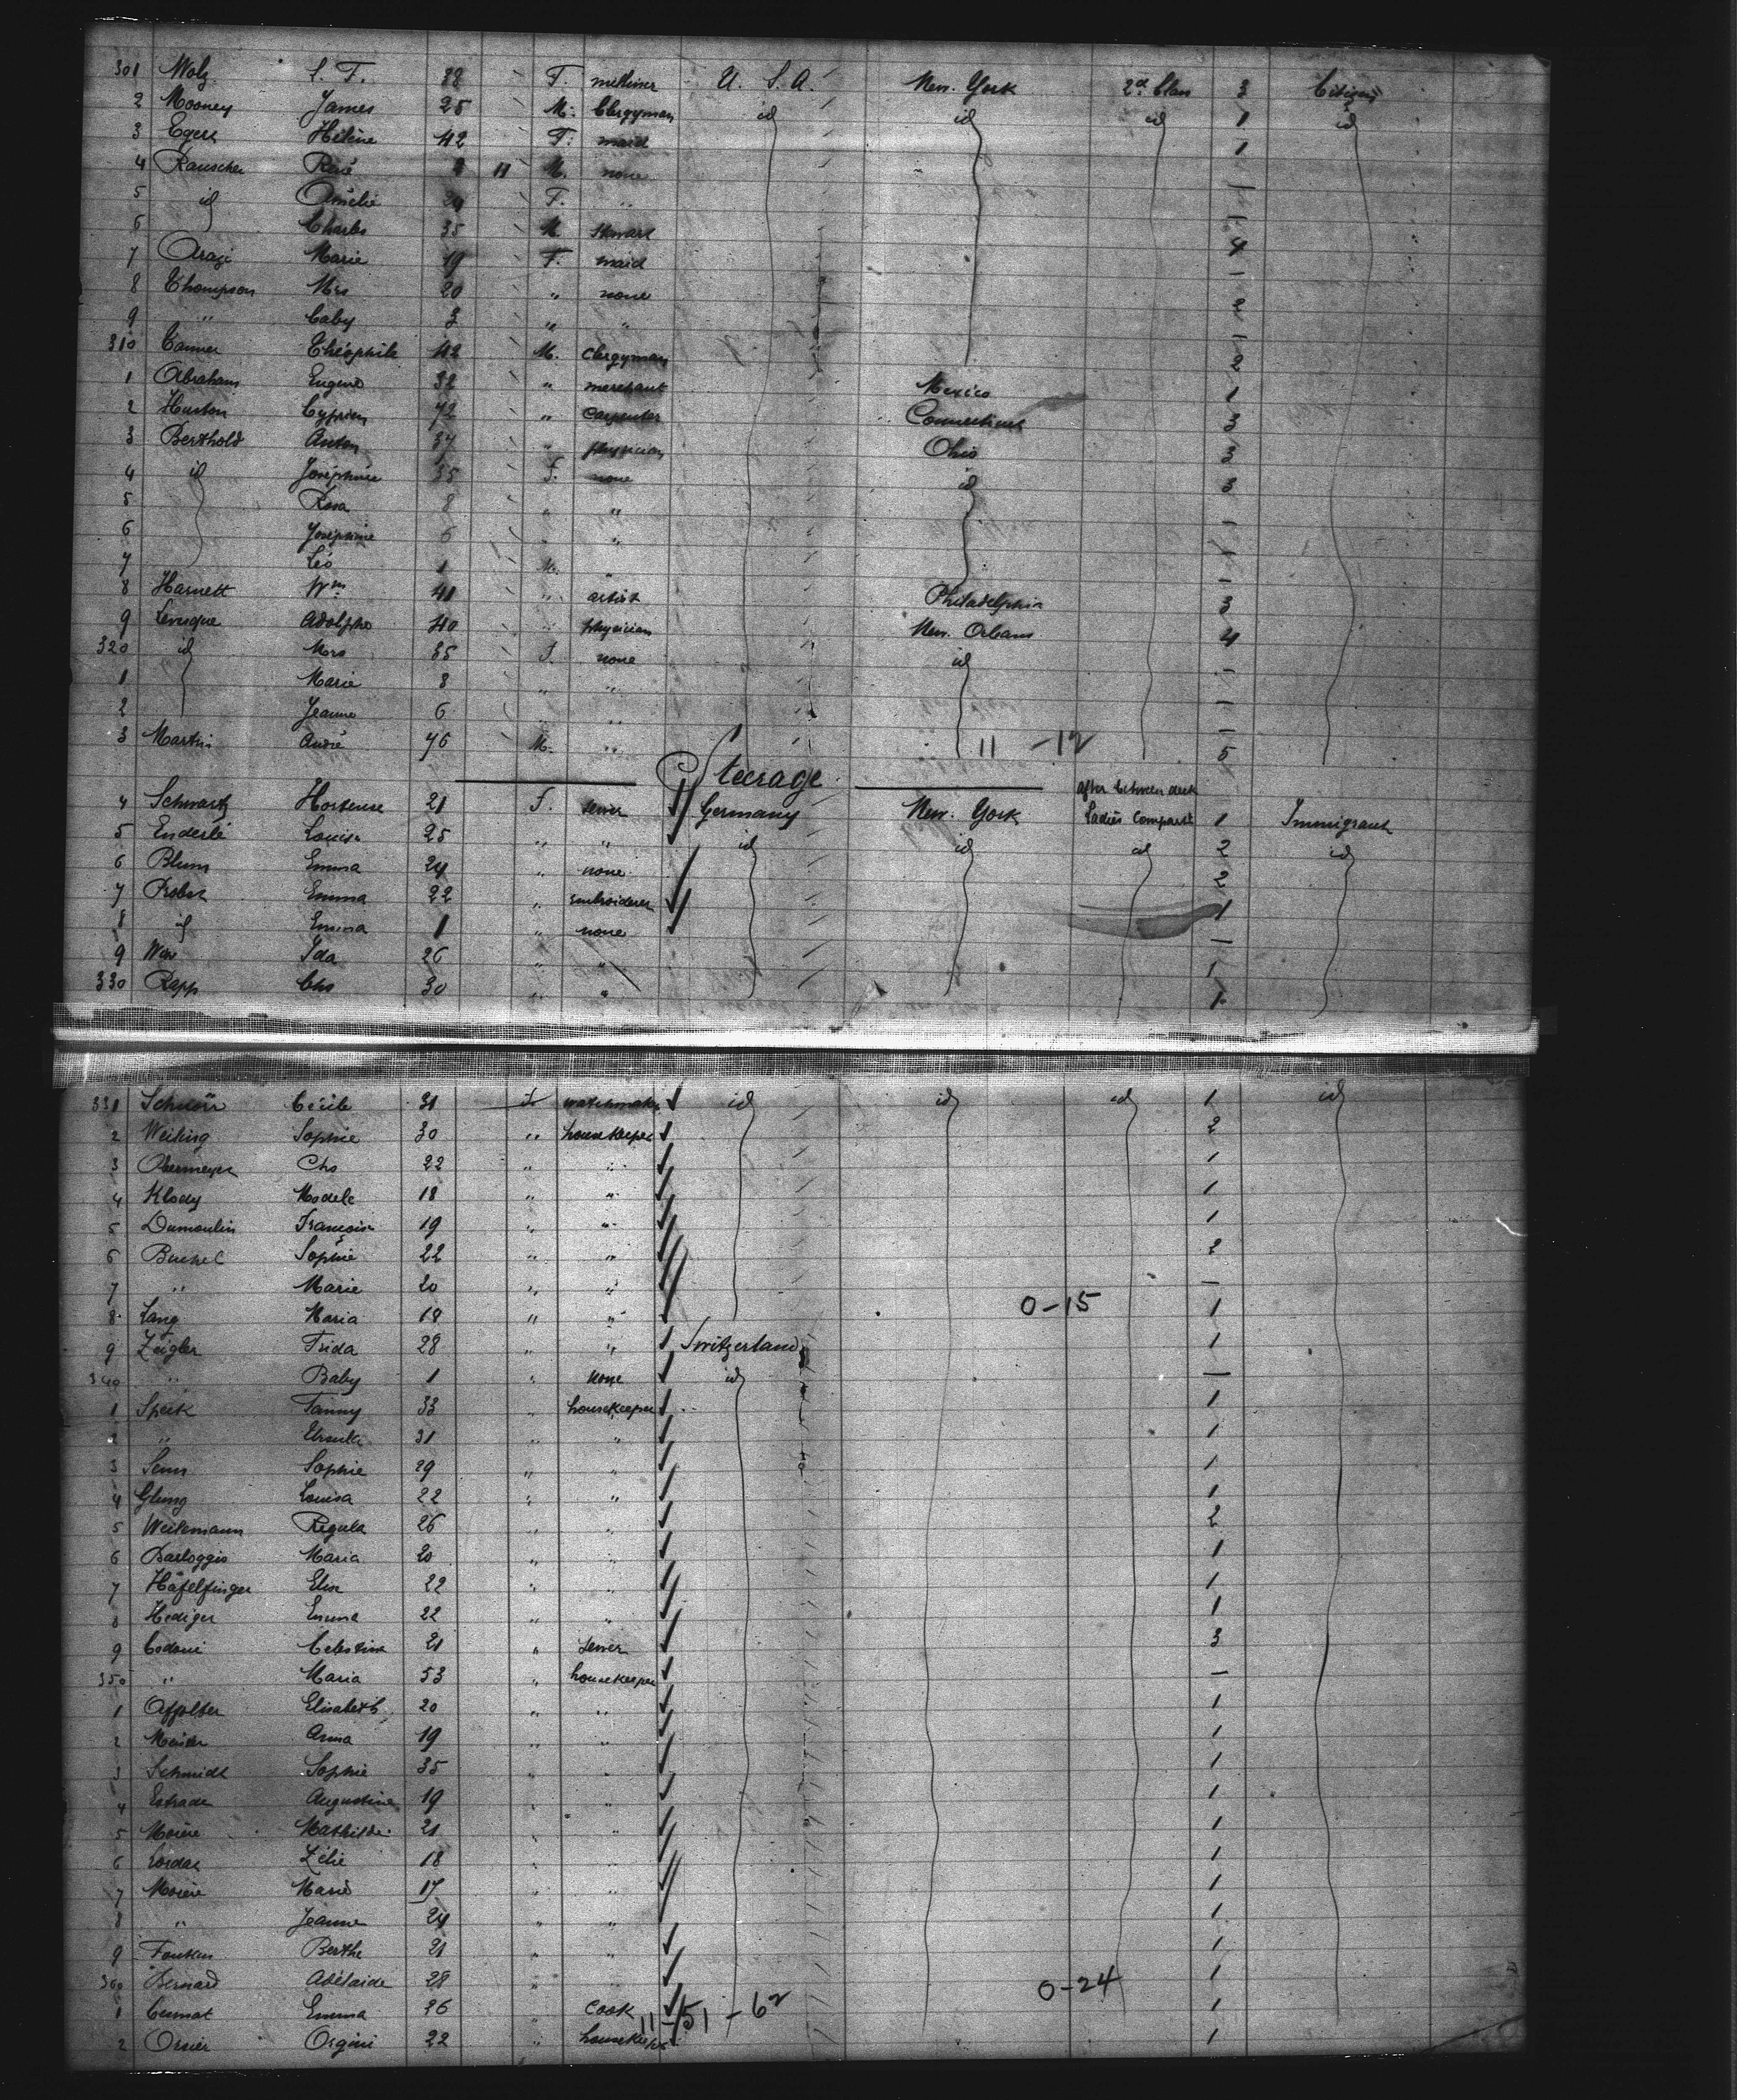 301 Wolz S. T. 38 F. milliner U. S. A. New. York 2d Class 3 Citizens
2 Mooney James 25 M. Clergyman id id id 1 id
3 Egers Hélène 42 F. maid 1
4 Rauscher René 11 M. none —
5 id Amélie 24 F. " —
6 Charles 35 M 4
7 Marie 19 F. maid —
8 Thompson Mrs 20 " none 2
9 " baby 3 " " —
310 Théophile 42 M. Clergyman 2
1 Abraham Eugene 32 " merchant Mexico 1
2 Huston Cyprien 72 " Carpenter Connecticut 3
3 Berthold Anton 37 " physician Ohio 3
4 id Josephine 35 F. none id 3
5 Rosa 8 " " —
6 Josephine 6 " " —
7 Léo 1 M. " —
8 Harnett Wm 41 " artist Philadelphia 3
9 Levesque Adolphe 40 " physician New. Orleans 4
320 id Mrs 35 F. none id —
1 Marie 8 " " —
2 Jeanne 6 " " —
3 Martin André 76 M. " 11 - 12 5
Steerage
4 Schwartz Hortense 21 F. sewer Germany New. York after between deck Ladies Compart 1 Immigrant
5 Enderlé Louisa 25 " " id id id 2 id
6 Blum Emma 24 " none 2
7 Probst Emma 22 " Embroiderer 1
8 id Emma 1 " none —
9 Ida 26 " " 1
330 Rapp Chs 30 " " 1
331 Cécile 31 F. watchmaker id id id 1 id
2 Weiking Sophie 30 " housekeeper 2
3 Obermeyer Chs 22 " " 1
4 Klody Modele 18 " " 1
5 Dumoulin Françoise 19 " " 1
6 Buchel Sophie 22 " " 2
7 " Marie 20 " " —
8 Lang Maria 18 " " 0-15 1
9 Zeigler Frida 28 " " Switzerland 1
340 " Baby 1 " none id —
1 Speck Fanny 33 " housekeeper 1
2 " Ursula 31 " " 1
3 Senn Sophie 29 " " 1
4 Glung Louisa 22 " " 1
5 Weilemann Regula 26 " " 2
6 Barloggio Maria 20 " " 1
7 Häfelfinger Elise 22 " " 1
8 Hediger Emma 22 " " 1
9 Codoni Celestina 21 " sewer 3
350 " Maria 53 " housekeeper —
1 Affolter Elisabeth 20 " " 1
2 Meister Anna 19 " " 1
3 Schmidt Sophie 35 " " 1
4 Estrade Augustine 19 " " 1
5 Morère Mathilde 21 " " 1
6 Lordas Zélie 18 " " 1
7 Morère Marie 17 " " 1
8 " Jeanne 24 " " 1
9 Berthe 21 " " 1
360 Bernard Adélaide 28 " " 0-24 1
1 Emma 26 " Cook 1
11-51 - 62
2 Orsier 22 " housekeeper 1